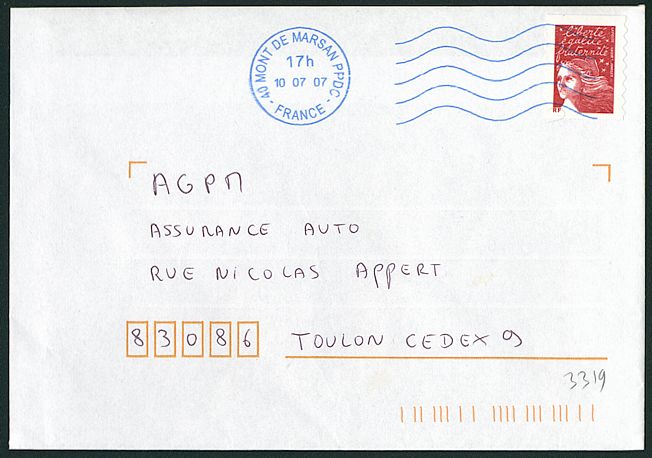 40 MONT DE MARSAN PPDC
17h
10 07 07
- FRANCE -
liberté
égalité
fraternité
RF
AGPM
ASSURANCE AUTO
RUE NICOLAS APPERT
83086 TOULON CEDEX 9
3319